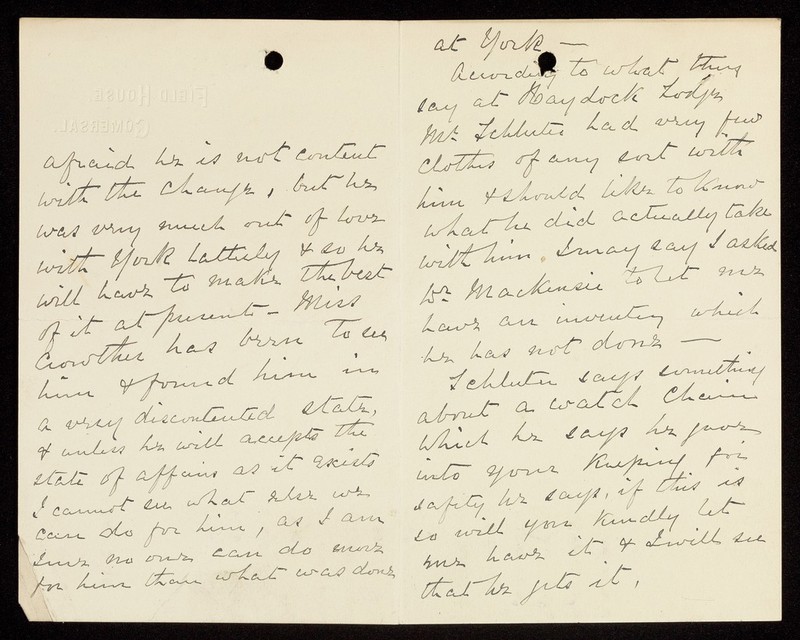 FIELD HOUSE.
GOMERSAL.
afraid he is not content
with the change, but he
was very much out of love
with York lattely & so he
will have to make the best
of it at present – Miss
Crowther has been to see
him & found him in
a very discontented state,
& unless he will accepts the
state of affairs as it exists
I cannot see what else we
can do for him, as I am
sure no one can do more
for him than what was done
at York —
According to what they
say at Haydock Lodge
Mr Schluter had very few
clothes of any sort with
him & should like to know
what he did actually take
with him. I may say I asked
Dr Mackenzie to let me
have an inventory which
he has not done —
Schluter says something
about a watch chain
which he says he gave
into your keeping for
safety he says, if this is
so will you kindly let
me have it & I will see
that he gets it.